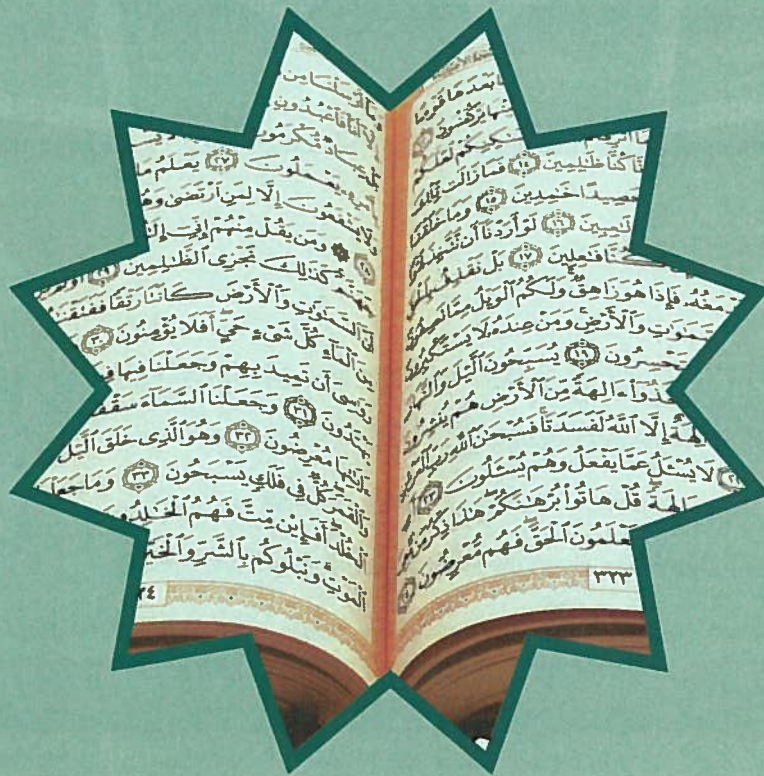 بَعْدَهَا قَوْمًا
مِّنْهَا يَرْكُضُونَ
وَمَسَٰكِنِكُمْ لَعَلَّكُمْ
كُنَّا ظَٰلِمِينَ ١٤ فَمَا زَالَت تِّلْكَ
حَصِيدًا خَٰمِدِينَ ١٥ وَمَا خَلَقْنَا
لَٰعِبِينَ ١٦ لَوْ أَرَدْنَآ أَن نَّتَّخِذَ لَهْوًا
كُنَّا فَٰعِلِينَ ١٧ بَلْ نَقْذِفُ بِٱلْحَقِّ
فَيَدْمَغُهُۥ فَإِذَا هُوَ زَاهِقٌ وَلَكُمُ ٱلْوَيْلُ مِمَّا تَصِفُونَ
ٱلسَّمَٰوَٰتِ وَٱلْأَرْضِ وَمَنْ عِندَهُۥ لَا يَسْتَكْبِرُونَ
يَسْتَحْسِرُونَ ١٩ يُسَبِّحُونَ ٱلَّيْلَ وَٱلنَّهَارَ
ٱتَّخَذُوٓا۟ ءَالِهَةً مِّنَ ٱلْأَرْضِ هُمْ يُنشِرُونَ
ءَالِهَةٌ إِلَّا ٱللَّهُ لَفَسَدَتَا فَسُبْحَٰنَ ٱللَّهِ رَبِّ ٱلْعَرْشِ
لَا يُسْـَٔلُ عَمَّا يَفْعَلُ وَهُمْ يُسْـَٔلُونَ ٢٣
ءَالِهَةً قُلْ هَاتُوا۟ بُرْهَٰنَكُمْ هَٰذَا ذِكْرُ مَن مَّعِىَ
يَعْلَمُونَ ٱلْحَقَّ فَهُم مُّعْرِضُونَ ٢٤
٣٢٣
وَمَآ أَرْسَلْنَا مِن
إِلَّآ أَنَا۠ فَٱعْبُدُونِ
بَلْ عِبَادٌ مُّكْرَمُونَ
بِأَمْرِهِۦ يَعْمَلُونَ ٢٧ يَعْلَمُ مَا
وَلَا يَشْفَعُونَ إِلَّا لِمَنِ ٱرْتَضَىٰ وَهُم
٢٨ وَمَن يَقُلْ مِنْهُمْ إِنِّىٓ إِلَٰهٌ
جَهَنَّمَ كَذَٰلِكَ نَجْزِى ٱلظَّٰلِمِينَ ٢٩ أَوَلَمْ يَرَ
أَنَّ ٱلسَّمَٰوَٰتِ وَٱلْأَرْضَ كَانَتَا رَتْقًا فَفَتَقْنَٰهُمَا
مِنَ ٱلْمَآءِ كُلَّ شَىْءٍ حَىٍّ أَفَلَا يُؤْمِنُونَ ٣٠
رَوَٰسِىَ أَن تَمِيدَ بِهِمْ وَجَعَلْنَا فِيهَا
يَهْتَدُونَ ٣١ وَجَعَلْنَا ٱلسَّمَآءَ سَقْفًا
ءَايَٰتِهَا مُعْرِضُونَ ٣٢ وَهُوَ ٱلَّذِى خَلَقَ ٱلَّيْلَ
وَٱلْقَمَرَ كُلٌّ فِى فَلَكٍ يَسْبَحُونَ ٣٣ وَمَا جَعَلْنَا
ٱلْخُلْدَ أَفَإِي۟ن مِّتَّ فَهُمُ ٱلْخَٰلِدُونَ
ٱلْمَوْتِ وَنَبْلُوكُم بِٱلشَّرِّ وَٱلْخَيْرِ
٢٤